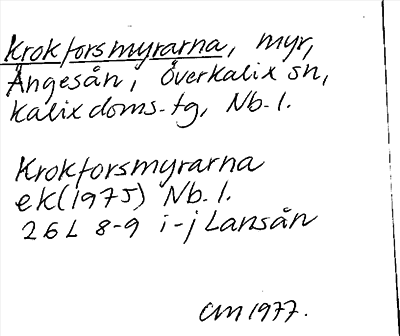 Krokforsmyrarna, myr,
Ängesån, Överkalix sn,
Kalix doms-tg, Nb. l.
Krokforsmyrarna
ek (1975) Nb. l.
26L 8-9 i-j Lansån
CM 1977.